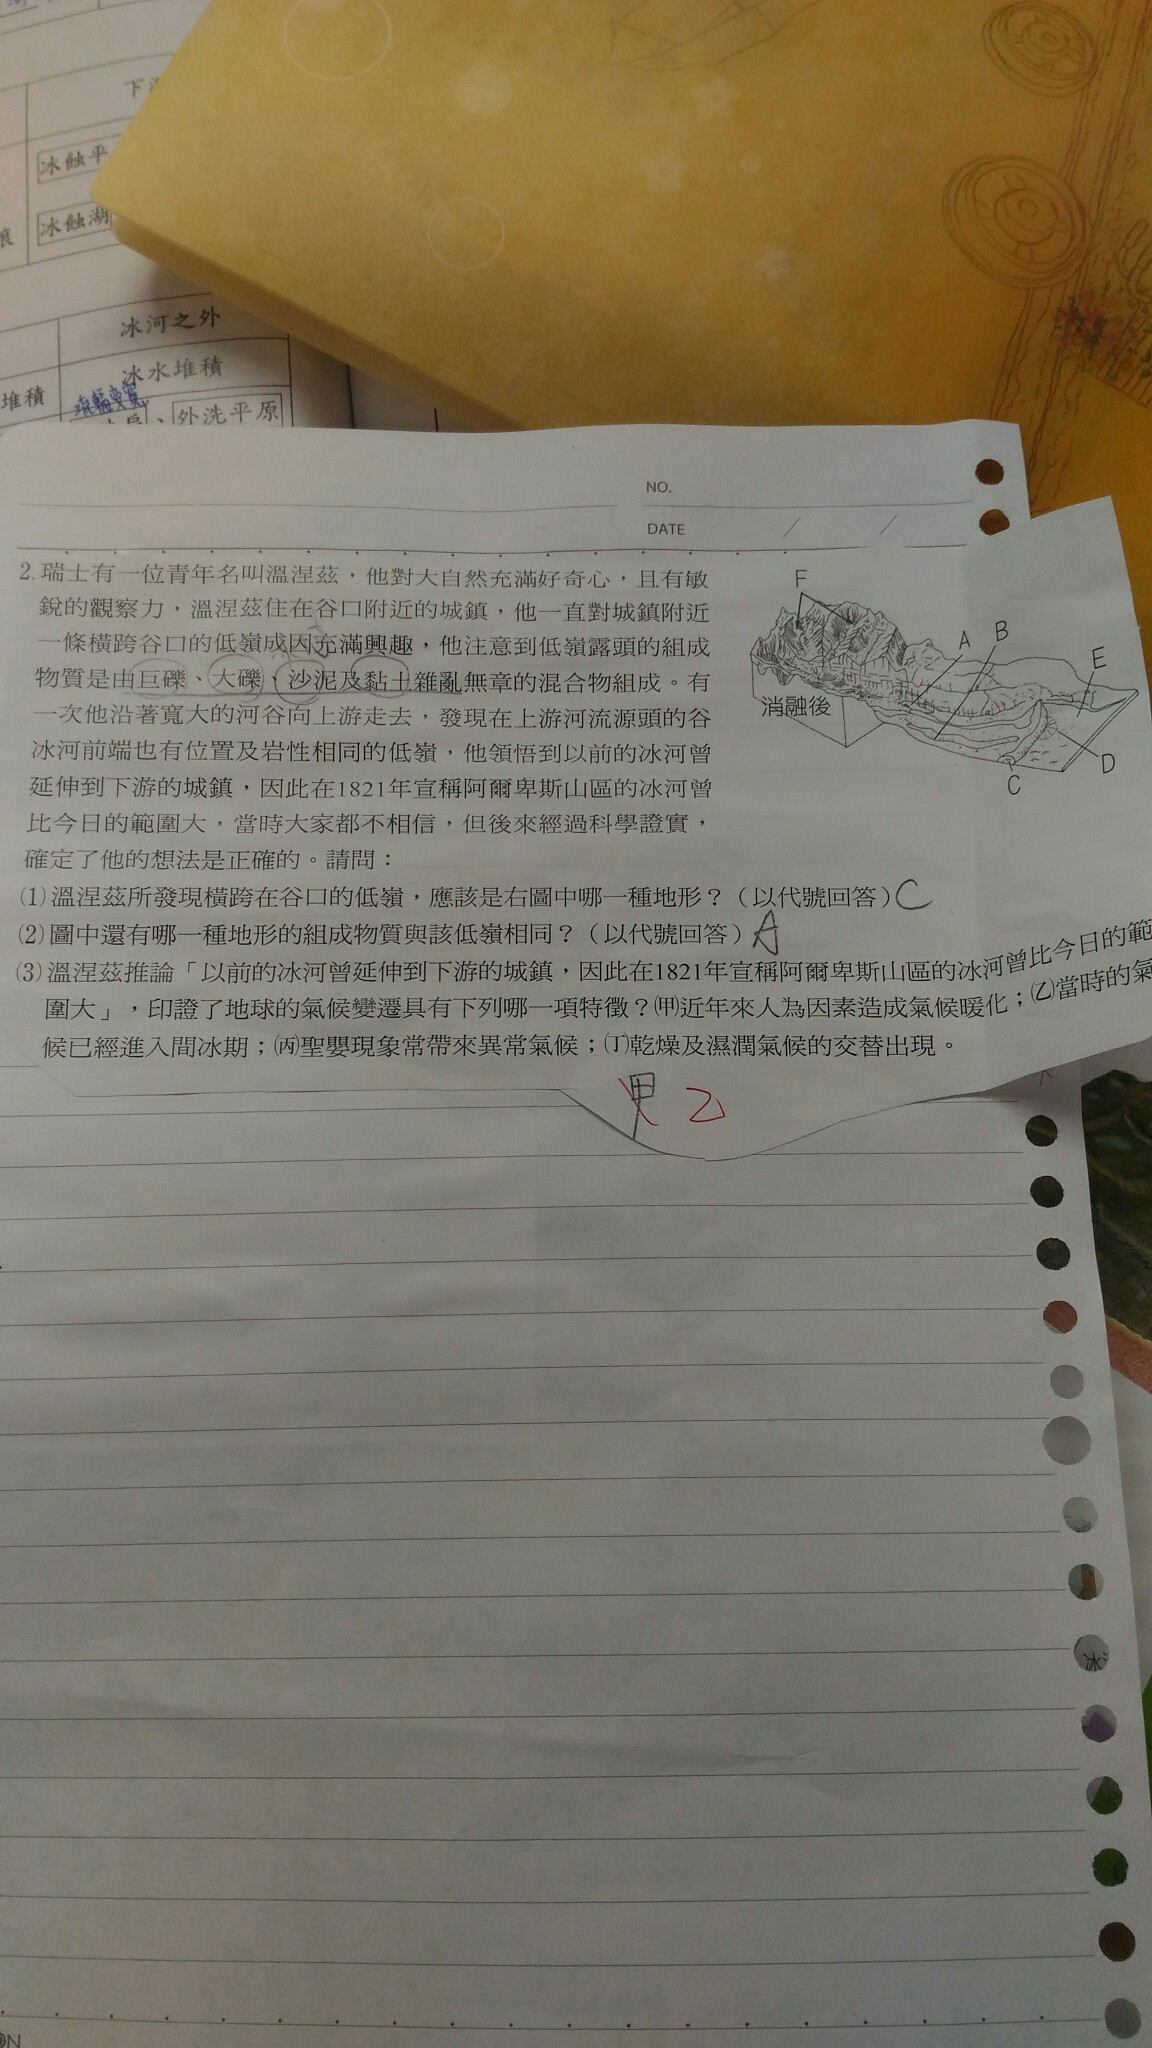 下
冰蝕平
冰蝕湖
痕
冰河之外
堆積
冰水堆積
、外洗平原
NO.
DATE / /
2. 瑞士有一位青年名叫溫涅茲，他對大自然充滿好奇心，且有敏
銳的觀察力，溫涅茲住在谷口附近的城鎮，他一直對城鎮附近
一條橫跨谷口的低嶺成因充滿興趣，他注意到低嶺露頭的組成
物質是由巨礫、大礫、沙泥及黏土雜亂無章的混合物組成。有
一次他沿著寬大的河谷向上游走去，發現在上游河流源頭的谷
冰河前端也有位置及岩性相同的低嶺，他領悟到以前的冰河曾
延伸到下游的城鎮，因此在1821年宣稱阿爾卑斯山區的冰河曾
比今日的範圍大，當時大家都不相信，但後來經過科學證實，
確定了他的想法是正確的。請問：
F
A
B
E
消融後
D
C
⑴溫涅茲所發現橫跨在谷口的低嶺，應該是右圖中哪一種地形？（以代號回答）C
⑵圖中還有哪一種地形的組成物質與該低嶺相同？（以代號回答）A
⑶溫涅茲推論「以前的冰河曾延伸到下游的城鎮，因此在1821年宣稱阿爾卑斯山區的冰河曾比今日的範
圍大」，印證了地球的氣候變遷具有下列哪一項特徵？㈙近年來人為因素造成氣候暖化；(乙)當時的氣
候已經進入間冰期；(丙)聖嬰現象常帶來異常氣候；(丁)乾燥及濕潤氣候的交替出現。
甲 乙
冰
ON